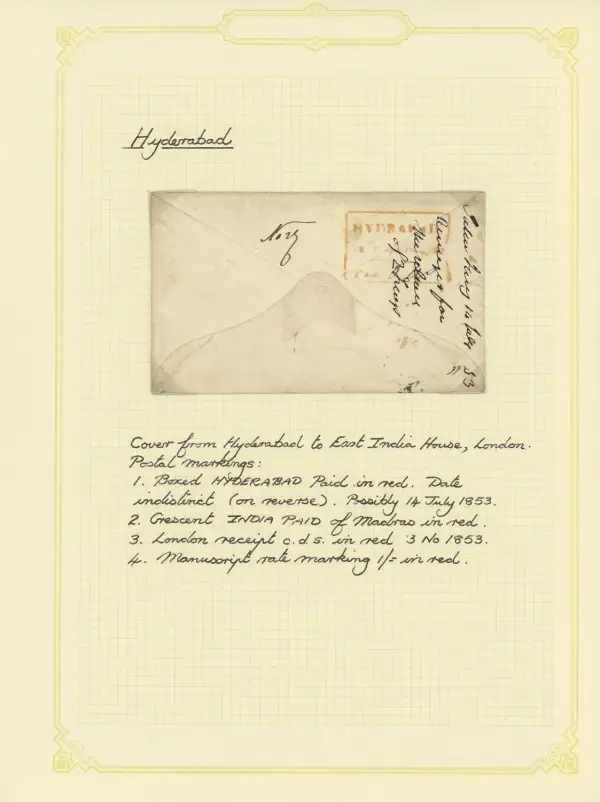 Hyderabad
HYDRABAD
July 14 July
for
of
53
Cover from Hyderabad to East India House, London.
Postal markings:
1. Boxed HYDERABAD Paid in red. Date
indistinct (on reverse). Possibly 14 July 1853.
2. Crescent INDIA PAID of Madras in red.
3. London receipt c.d.s. in red 3 No 1853.
4. Manuscript rate marking 1/= in red.